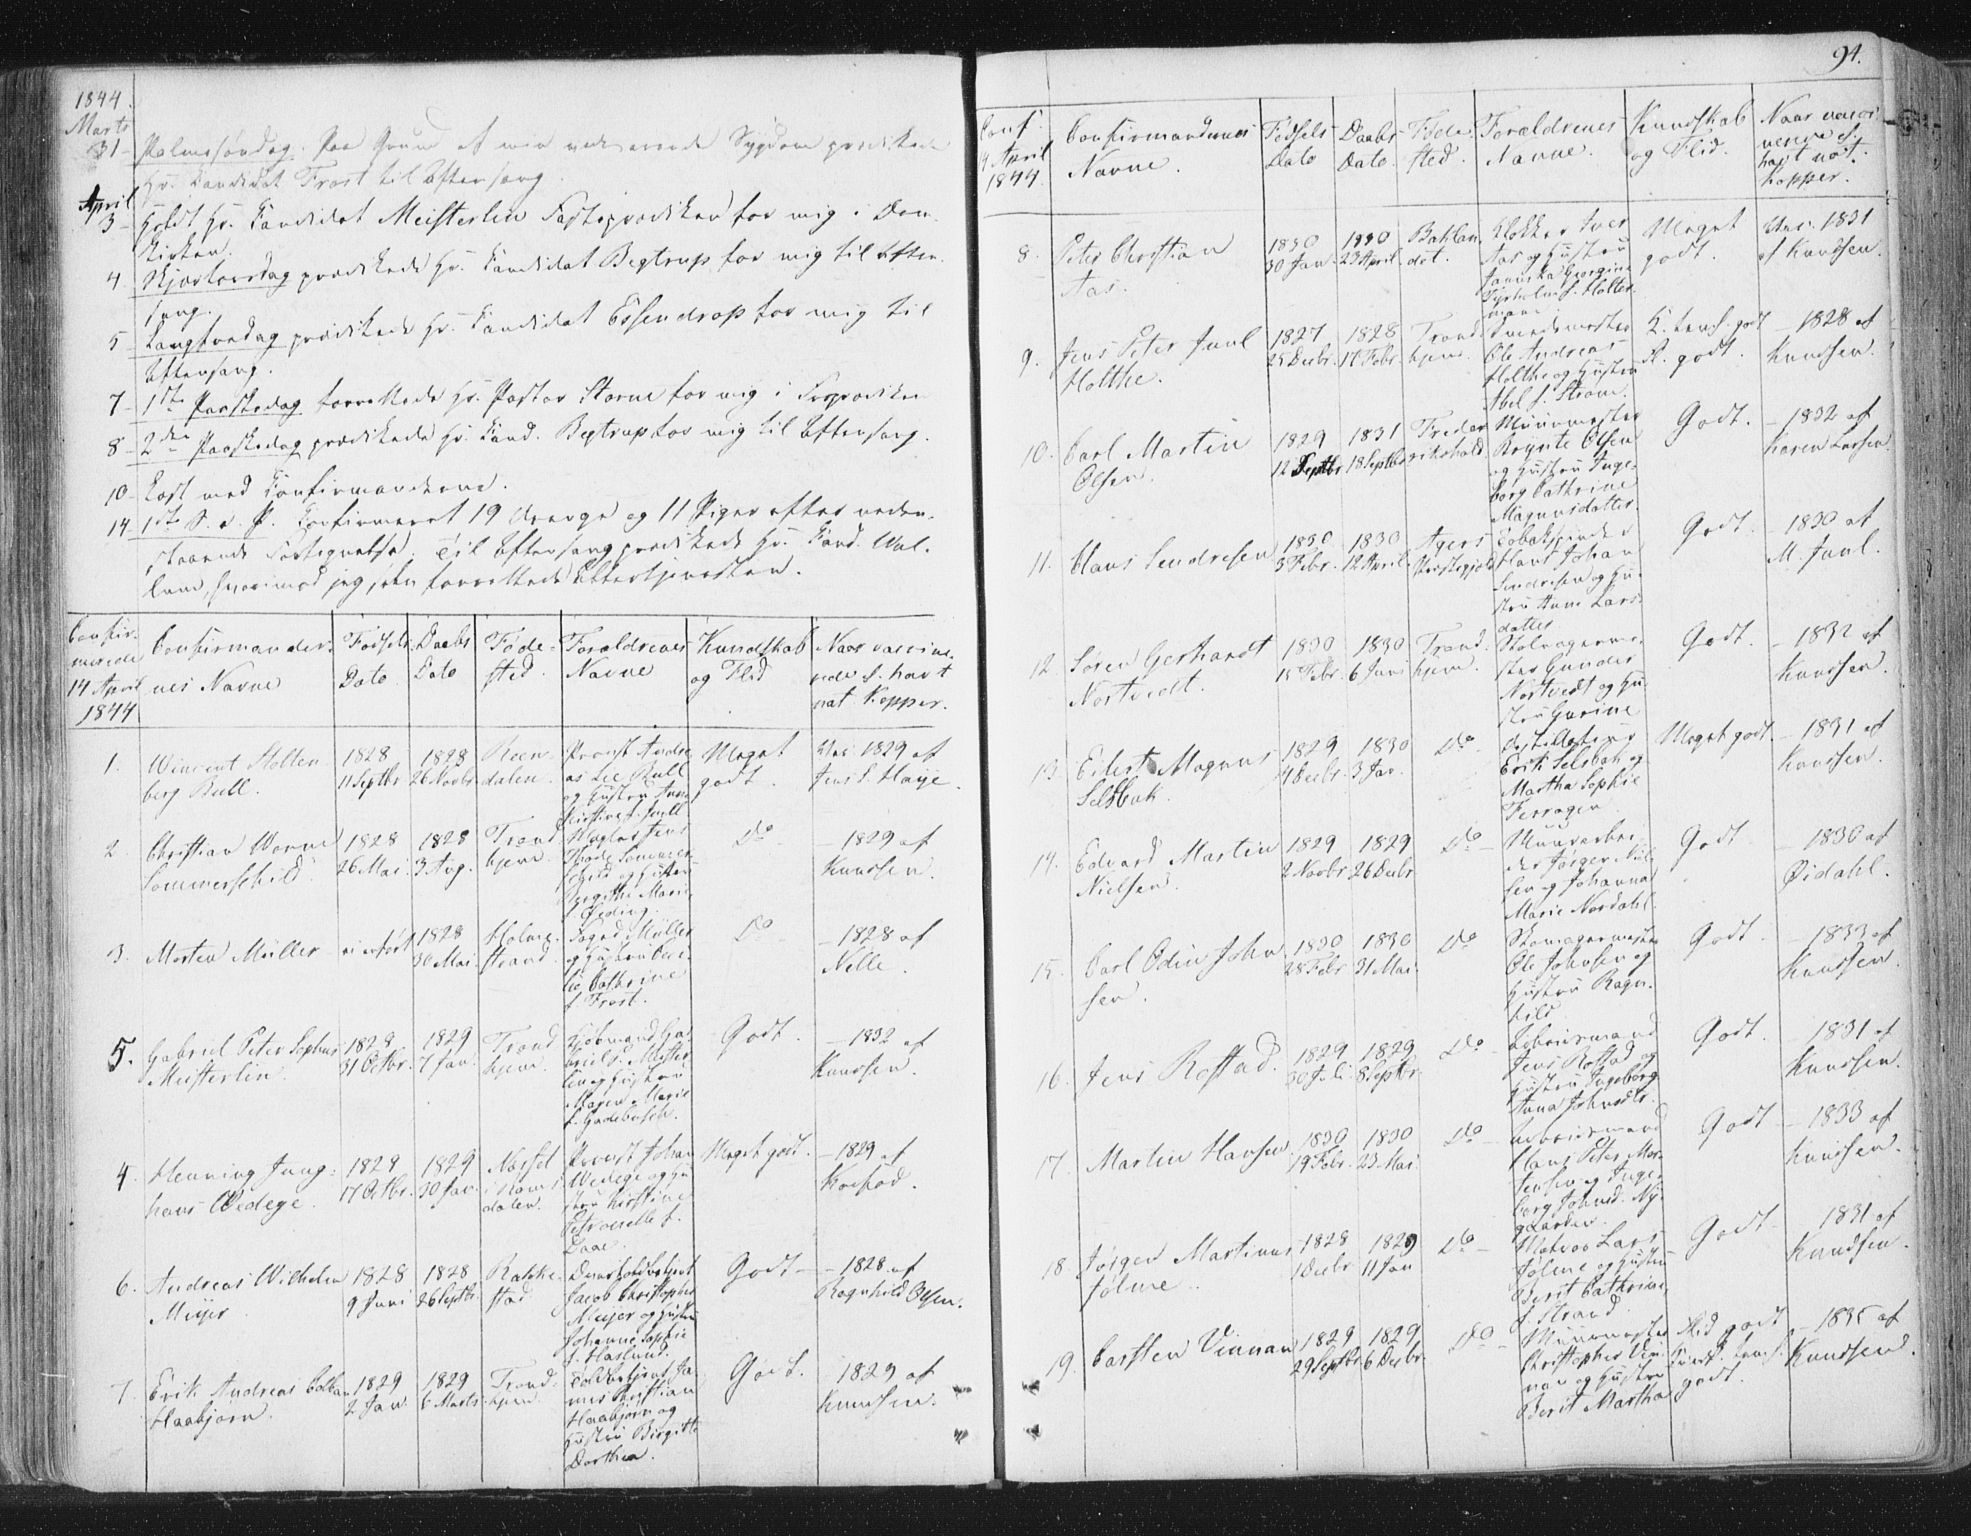 1844.
Marts
31 - Palmesøndag. Paa Grund af min vedvarende Sygdom prædikede
Hr. Kandidat Frost til Aftensang.
April
3 - Holdt Hr. Kandidat Meisterlin Fasteprædiken for mig i Dom-
kirken.
4 - Skjærtorsdag prædikede Hr. Kandidat Begtrup for mig til Aften-
sang.
5 - Langfredag prædikede Hr. Kandidat Essendrop for mig til
Aftensang.
7 - 1ste Paaskedag forrettede Hr. Pastor for mig i Froprædiken
8 - 2den Paaskedag prædikede Hr. Kand. Begtrup for mig til Aftensang.
10 - Læst med Konfirmanderne.
14 - 1ste S. e. P. Konfirmeret 19 Drenge og 11 Piger efter neden-
staaende Fortegnelse. Til Aftensang prædikede Hr. Kand. Wul-
lum, hvorimod jeg selv forrettede Eftertjenesten.
Confir-
merede
14 April
1844
Confirmander-
nes Navne
Fødsels
Dato
Daabs
Dato
Føde-
sted.
Forældrenes
Navne
Kundskab
og Flid
Naar vaccine-
rede l. havt
nat. Kopper.
1. Vincent Stolten-
berg Bull.
1828
11 Septbr
1828
26 Novbr
Reen-
dalen.
Provst Andre-
as Lee Bull
og Hustru Ane
Kirstine f. Bull
Meget
godt.
Vac. 1829 af
Jens S. Haye.
2. Christian Worm
Sommerschild.
1828
26 Mai.
1828
3 Aug.
Trond-
hjem.
Thode Sommer-
schild og Hustru
Birgitte Marie
f. Øeding.
Do
- 1829 af
Knudsen.
3. Morten Müller
ei anført
1828
30 Mai
Holme-
strand.
Foged Müller
og Hustru Ceci-
lie Cathrine
f. Frost.
Do
- 1828 af
Nelle.
5. Gabriel Peter Sophus
Meisterlin.
1828
31 Octbr.
1829
7 Jan.
Trond-
hjem.
Kjøbmand Ga-
briel S. Meister-
lin og Hustru
Maren Marie
f. Gadebusch.
Godt.
- 1832 af
Knudsen.
4. Henning Jung-
hans Wedege.
1828
17 Octbr.
1829
30 Jan.
i Roms-
dalen.
Provst Johan
Wedege og Hu-
stru Kirstine
Petronelle f.
Daae.
Meget godt.
- 1829 af
Koefod.
6. Andreas Wilhelm
Meyer
1828
9 Juni
1828
26 Septbr.
Jacob Christopher
Meyer og Hustru
Johanne Sophie
f. Haslund.
Godt
- 1828 af
Ragnhild Olsen.
7. Erik Andreas Colban
Haabjørn.
1829
2 Jan.
1829
6 Marts.
Trond-
hjem.
Toldbetjent Ja-
nus Christian
Haabjørn og
Hustru Birgitte
Dorthea.
Godt.
- 1829 af
Knudsen.
94.
Conf.
14 April
1844.
Confirmandernes
Navne.
Fødsels
Dato
Daabs
Dato.
Føde-
sted.
Forældrenes
Navne.
Kundskab
og Flid.
Naar vacci-
nerede el.
havt nat.
Kopper.
8. Peter Christian
Aas.
1830
30 Jan.
1830
23 April.
Baklan-
det.
Klokker Iver
Aas og Hustru
Jannika Georgine
Tyrholm f. Holter-
mann.
Meget
godt.
Vac. 1831
af Knudsen.
9. Jens Peter Juul
Holthe.
1827
25 Decbr.
1828
17 Febr.
Trond-
hjem.
Smedemester
Ole Andreas
Holthe og Hustru
Abel f. Strøm.
K. temf. godt
Fl. godt.
- 1828 af
Knudsen.
10. Carl Martin
Olsen.
1829
12 Septbr
1831
18 Septbr
Freder-
rikshald.
Muurmester
Brynte Olsen
og Hustru Inge-
borg Cathrine
Magnusdatter.
Godt.
- 1832 af
Karen Larsen.
11. Claus Sendresen
1830
3 Febr.
1830
12 April.
Agers
Præstegjeld
Tobakspinder
Hans Johan
Sendresen og Hu-
stru Anne Lars-
datter
Godt.
- 1830 af
M. Juul.
12. Søren Gerhardt
Nostvedt.
1830
15 Febr.
1830
6 Juni
Trond-
hjem.
Stolmagerme-
ster Gunder
Nostvedt og Hu-
stru Gurine
Godt.
- 1832 af
Knudsen.
13. Eilert Magnus
Selsbak.
1829
4 Decbr.
1830
3 Jan.
Do
Destillateur
Erik Selsbak og
Martha Sophie
Ferragen
Meget godt.
- 1831 af
Knudsen.
14. Edvard Martin
Nielsen.
1829
2 Novbr
1829
26 Decbr
Do
Muurarbei-
der Jørgen Niel-
sen og Johanna
Marie Nordahl.
Godt
- 1830 af
Øidahl.
15. Carl Odin John-
sen.
1830
28 Febr
1830
31 Mai.
Do
Skomagermester
Ole Johnsen og
Hustru Ragn-
hild
Godt.
- 1833 af
Knudsen.
16. Jens Rostad.
1829
30 Juli
1829
8 Septbr.
Do
Arbeidsmand
Jens Rostad og
Hustru Ingeborg
Anna Johnsdtr.
Godt.
- 1831 af
Knudsen.
17. Martin Hansen
1830
19 Febr.
1830
23 Mai.
Do
Arbeidsmand
Hans Peter Mor-
tensen og Inge-
borg Johnsd. Ny-
gaarden.
Godt
- 1833 af
Knudsen.
18. Jørgen Martinus
Jølme.
1828
1 Decbr
1829
11 Jan
Do
Matros Lars
Jølme og Hustru
Berit Cathrine
f. Strand.
Godt
- 1831 af
Knudsen.
19. Carsten Vinnan
1829
29 Septbr.
1829
6 Decbr.
Do
Muurmester
Christopher Vin-
nan og Hustru
Berit Martha
Flid godt
Kundsk. temf.
godt.
- 1835 af
Knudsen.